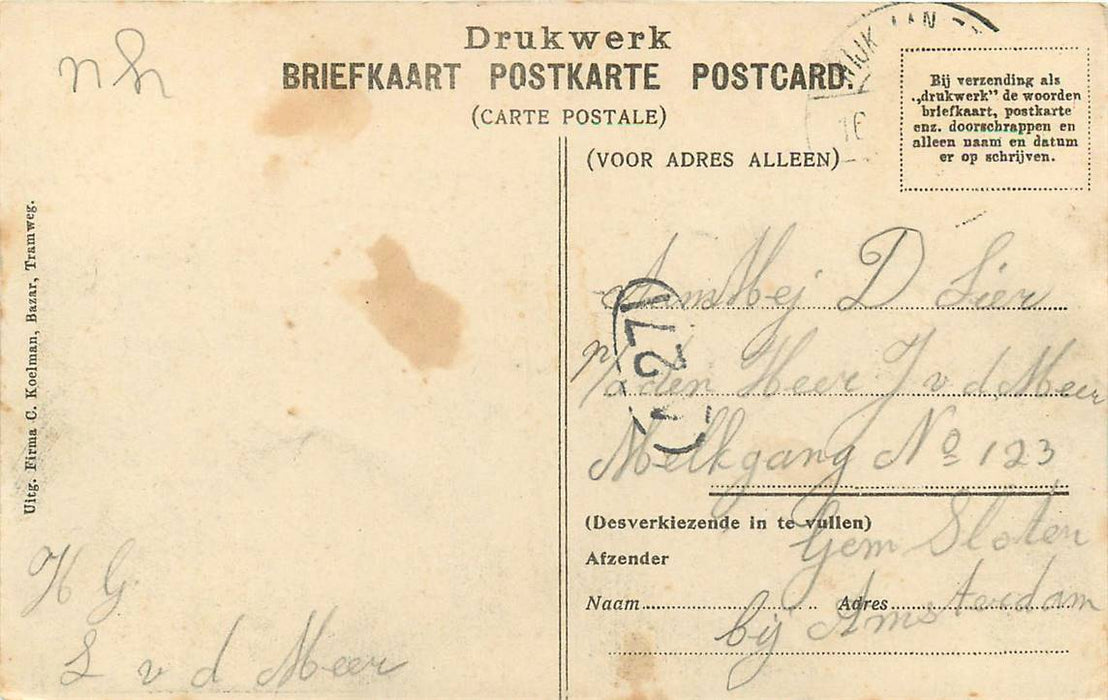 Drukwerk
BRIEFKAART POSTKARTE POSTCARD.
(CARTE POSTALE)
(VOOR ADRES ALLEEN)
Bij verzending als
„drukwerk” de woorden
briefkaart, postkarte
enz. doorschrappen en
alleen naam en datum
er op schrijven.
Uitg. Firma C. Koelman, Bazar, Tramweg.
H G
L v d Meer
Aan Mej D Lier
p/a den Heer J v d Meer
Melkgang No 123
Gem Sloten
bij Amsterdam
(Desverkiezende in te vullen)
Afzender
Naam
Adres